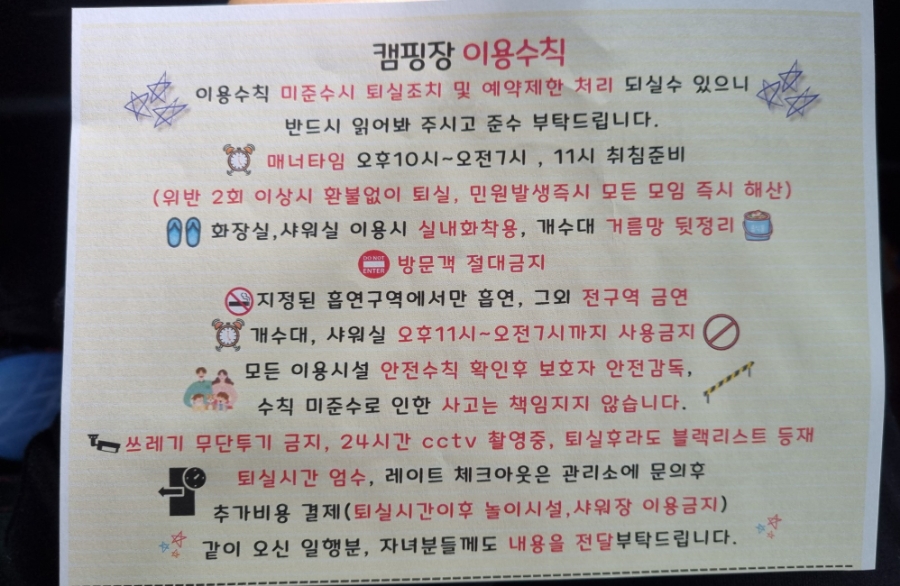 캠핑장 이용수칙
이용수칙 미준수시 퇴실조치 및 예약제한 처리 되실수 있으니
반드시 읽어봐 주시고 준수 부탁드립니다.
매너타임 오후10시~오전7시 , 11시 취침준비
(위반 2회 이상시 환불없이 퇴실, 민원발생즉시 모든 모임 즉시 해산)
화장실,샤워실 이용시 실내화착용, 개수대 거름망 뒷정리
DO NOT
ENTER
방문객 절대금지
지정된 흡연구역에서만 흡연, 그외 전구역 금연
개수대, 샤워실 오후11시~오전7시까지 사용금지
모든 이용시설 안전수칙 확인후 보호자 안전감독,
수칙 미준수로 인한 사고는 책임지지 않습니다.
쓰레기 무단투기 금지, 24시간 cctv 촬영중, 퇴실후라도 블랙리스트 등재
퇴실시간 엄수, 레이트 체크아웃은 관리소에 문의후
추가비용 결제(퇴실시간이후 놀이시설,샤워장 이용금지)
같이 오신 일행분, 자녀분들께도 내용을 전달부탁드립니다.